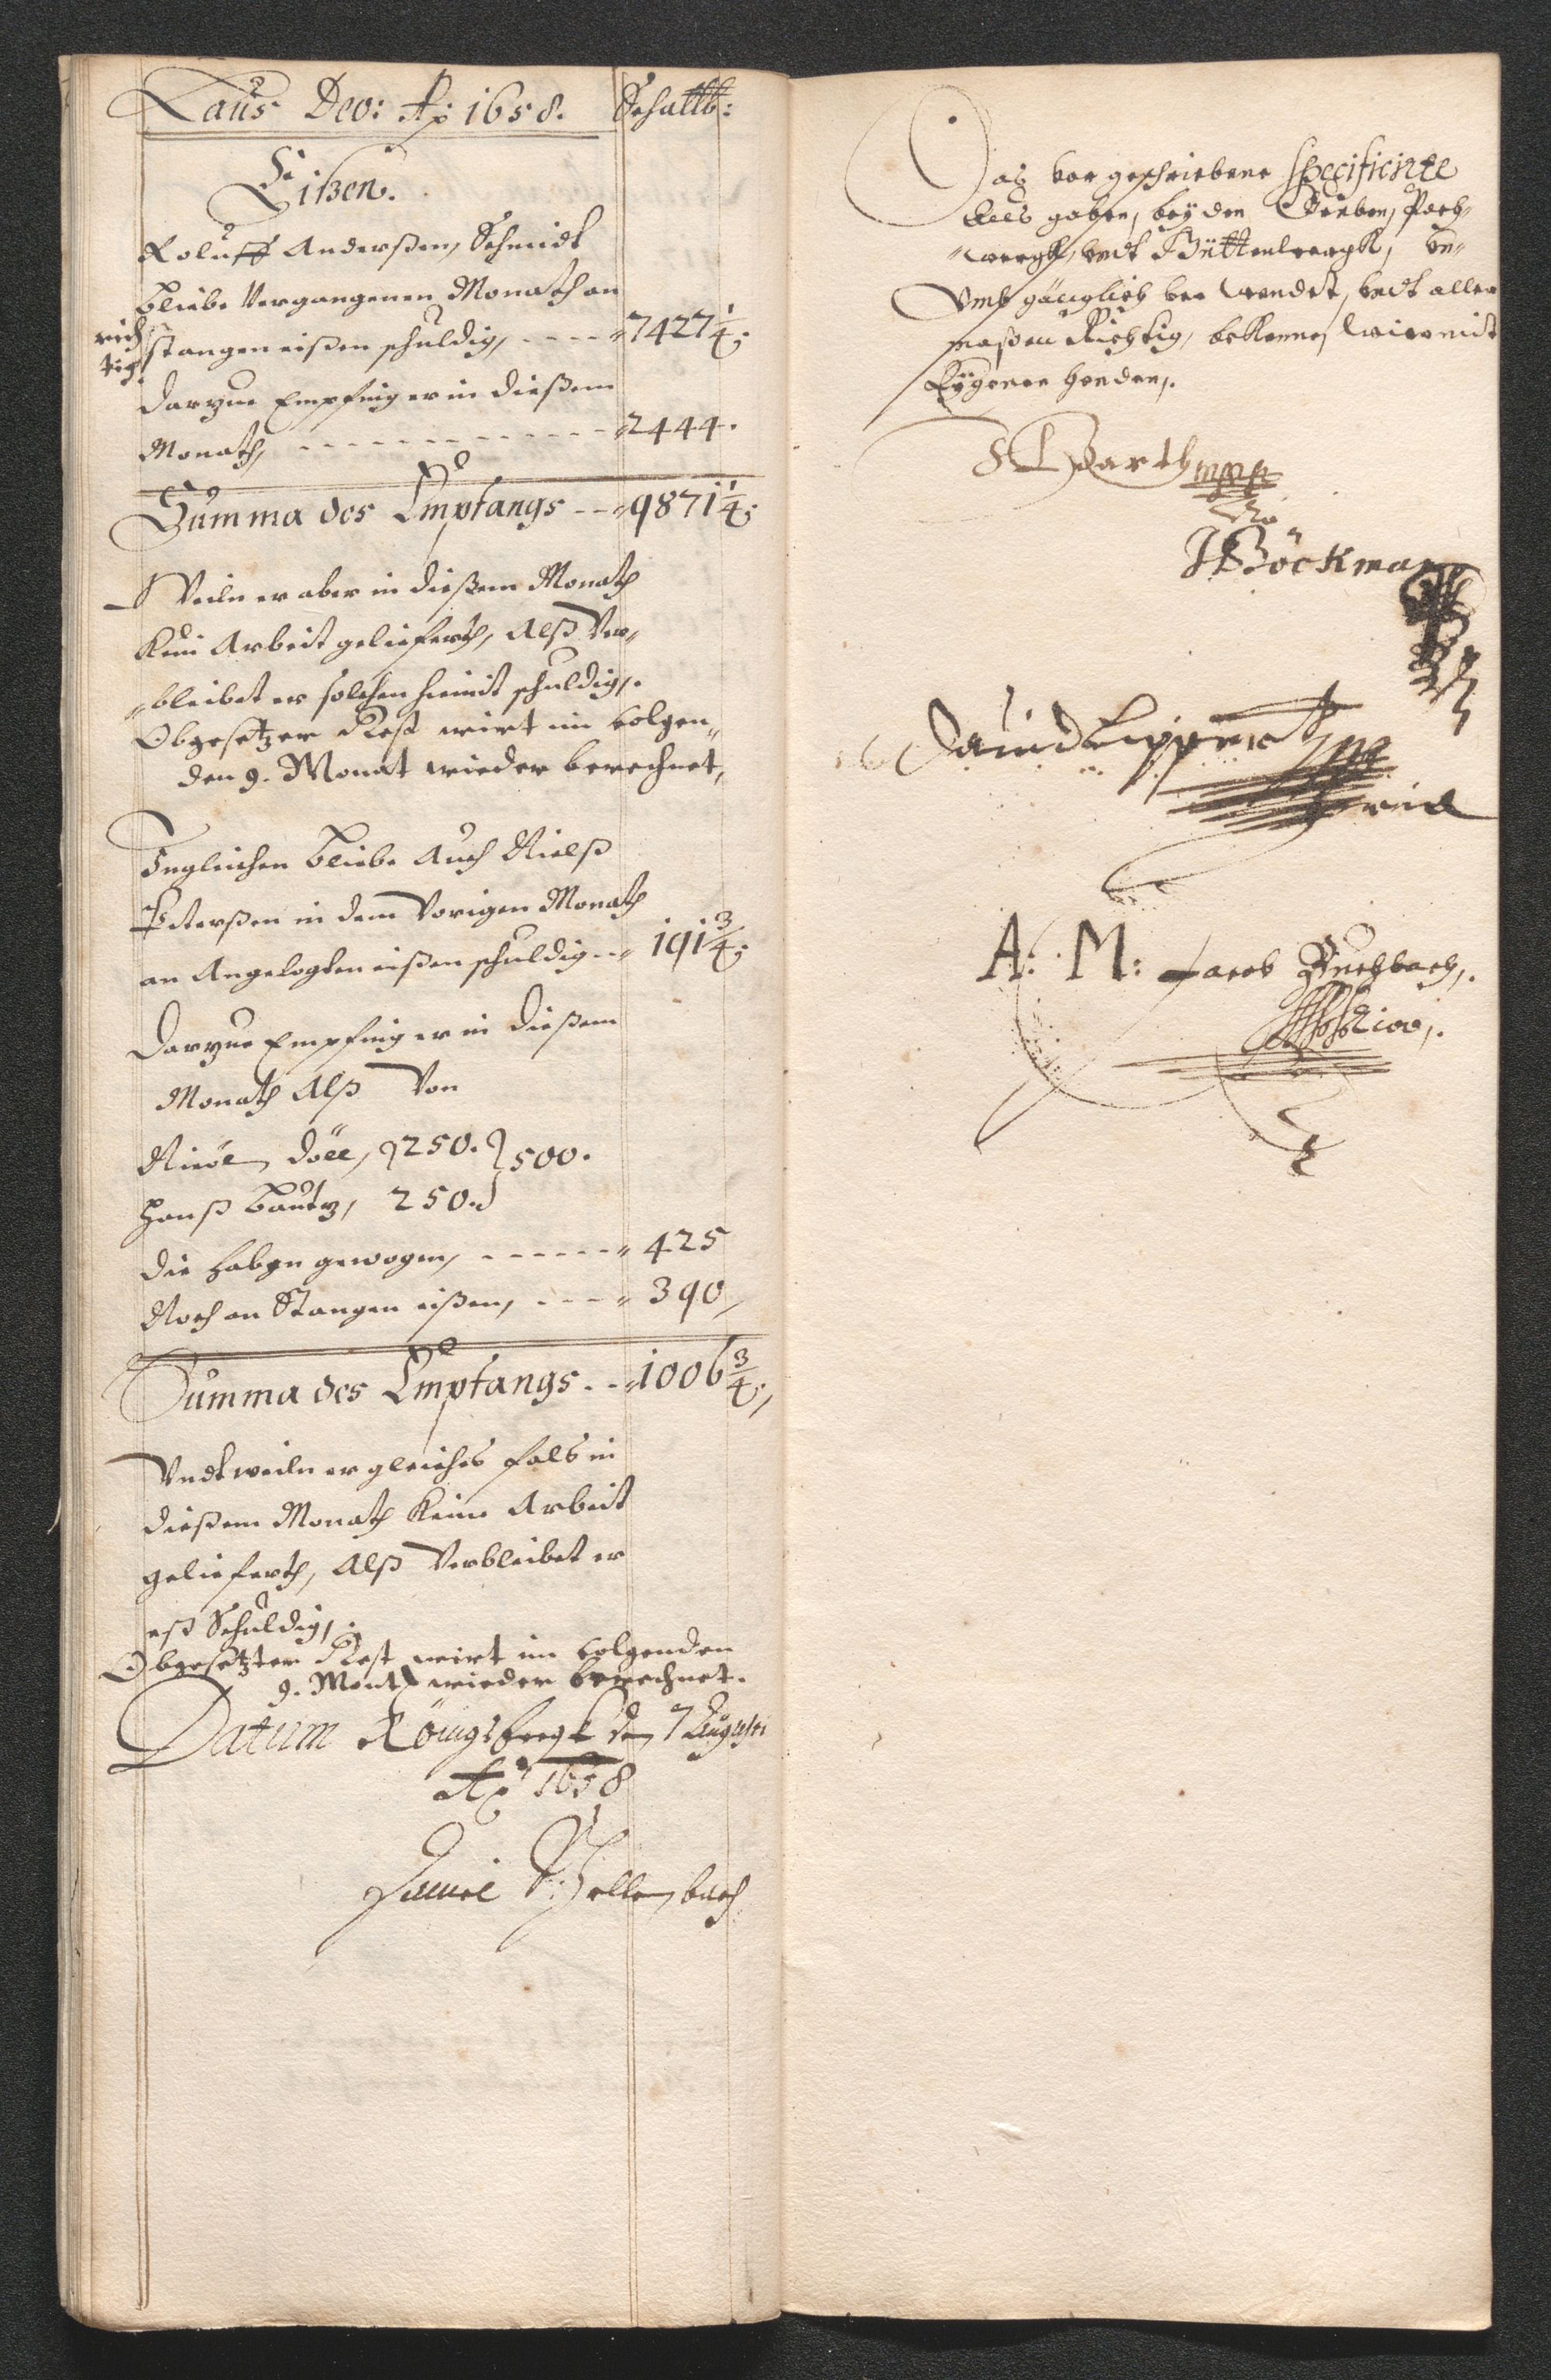 Laus Deo: Ao 1658. Schallb:
Eißen.
Roluff Anderßen, Schmidt
bliebe Vergangenen Monath an
rich
tig.
stangen eißen schuldig, - - - - 7427 1/4.
Darzue Empfing er in dießem
Monath, - - - - - - - - - - 2444.
Summa des Empfangs - - 9871 1/4.
Weiln er aber in dießem Monath
Kein Arbeit geliefferth, Alß Ver„
„bleibet er solchen hiemit schuldig,.
Obgesetzter Rest wirt im volgen„
den 9. Monat wieder berechnet,
Ingleichen bliebe Auch Nielß
Peterßen in dem Vorigen Monath
an Angelegten eißen schuldig - - 191 3/4.
Darzue Empfing er in dießem
Monath Alß Von
250. } 500.
Hanß Bautz, 250.
die haben gewogen, - - - - - - 425
Noch an Stangen eißen, - - - - 390,
Summa des Empfangs - - 1006 3/4.,
Undt weiln er gleiches fals in
dießem Monath Keine Arbeit
geliefferth, Alß Verbleibet er
eß Schuldig,.
Obgesetzter Rest wirt im volgenden
9. Month wieder berechnet.
Datum Königsbergk den 7 Augusti
Ao 1658
Das vorgeschriebene Specificirte
bey den Gruben, Poch„
„wergk, undt Hüttenwergk, un„
Umb gänglich verwendet, undt aller
maßen Richtig, bekennen wir mit
Eygenen Henden,.
Barth mppa
J Böckman
David Lippert
A: M: Jacob Buchbach,.